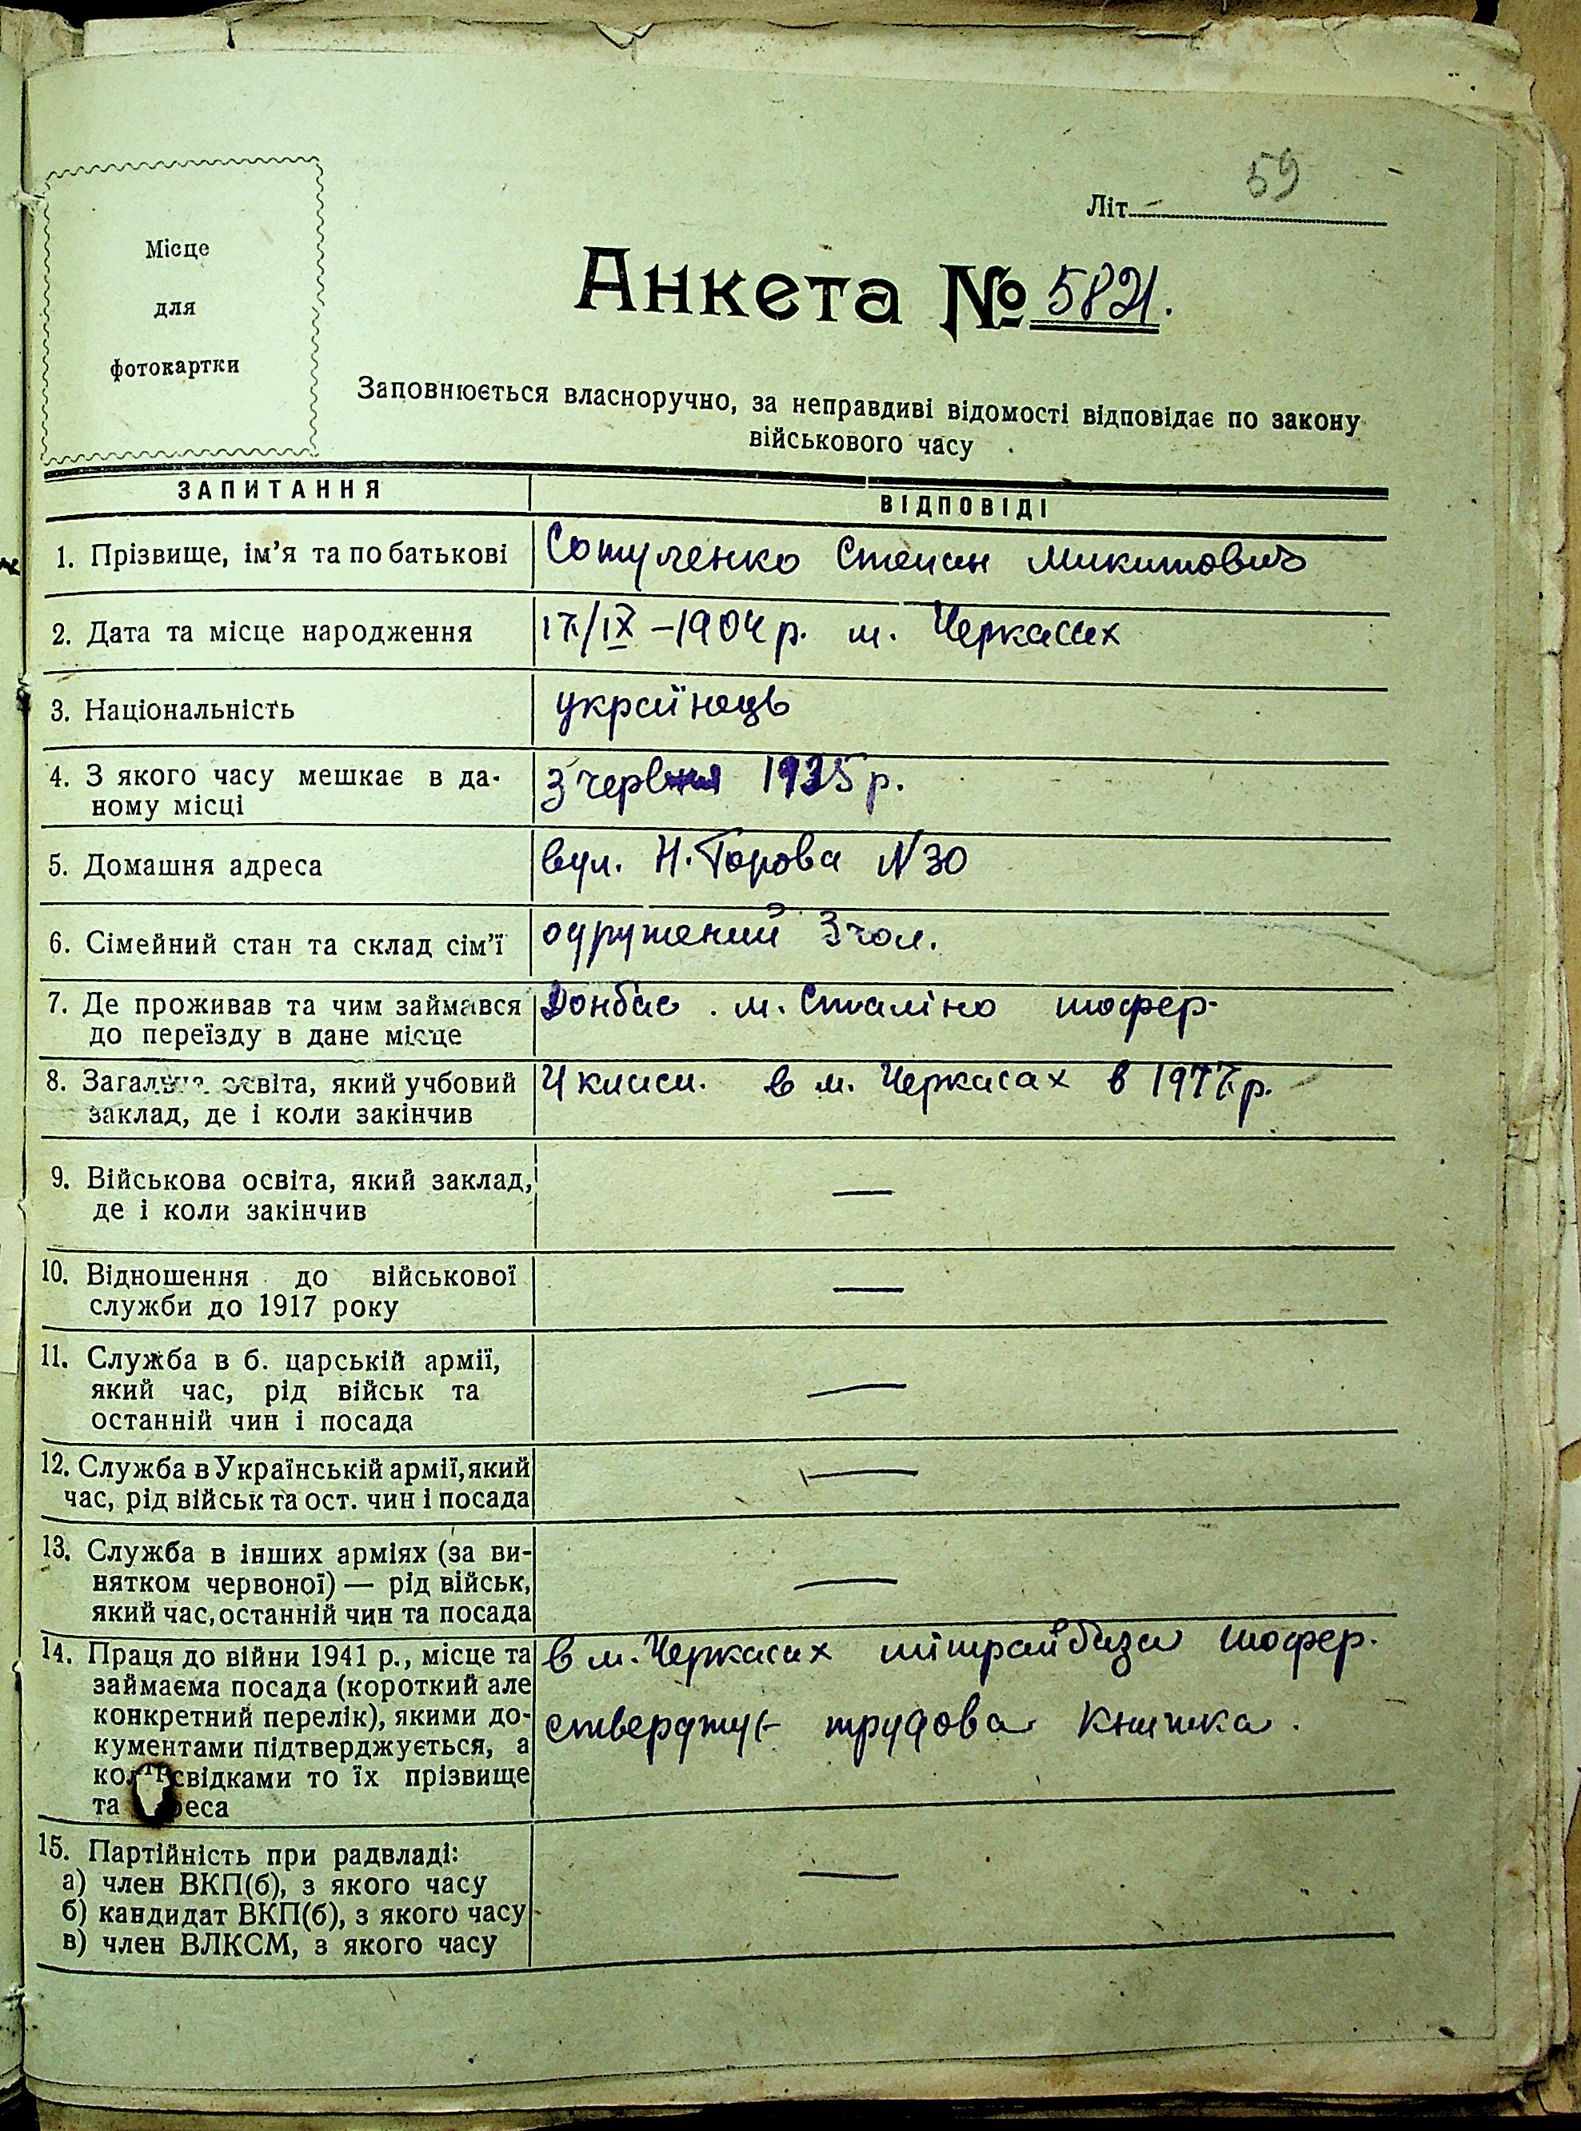 59
Літ.
Місце
для
фотокартки
Анкета № 5821.
Заповнюється власноручно, за неправдиві відомості відповідає по закону
військового часу
ЗАПИТАННЯ ВІДПОВІДІ
1. Прізвище, ім'я та по батькові Степан Микитович
2. Дата та місце народження 17/IX – 1904 р. м. Черкасах
3. Національність українець
4. З якого часу мешкає в да-
ному місці
З червня 1935 р.
5. Домашня адреса вул. Н. Горова N 30
6. Сімейний стан та склад сім'ї одружений 3 чол.
7. Де проживав та чим займався
до переїзду в дане місце
Донбас. м. Сталіно шофер-
8. Загальна освіта, який учбовий
заклад, де і коли закінчив
4 класи. в м. Черкасах в р.
9. Військова освіта, який заклад,
де і коли закінчив
—
10. Відношення до військової
служби до 1917 року
—
11. Служба в б. царській армії,
який час, рід військ та
останній чин і посада
—
12. Служба в Українській армії, який
час, рід військ та ост. чин і посада
—
13. Служба в інших арміях (за ви-
нятком червоної) — рід військ,
який час, останній чин та посада
—
14. Праця до війни 1941 р., місце та
займаєма посада (короткий але
конкретний перелік), якими до-
кументами підтверджується, а
свідками то їх прізвище
та
в м. Черкасах шофер.
стверджує трудова книжка.
15. Партійність при радвладі:
а) член ВКП(б), з якого часу
б) кандидат ВКП(б), з якого часу
в) член ВЛКСМ, з якого часу
—